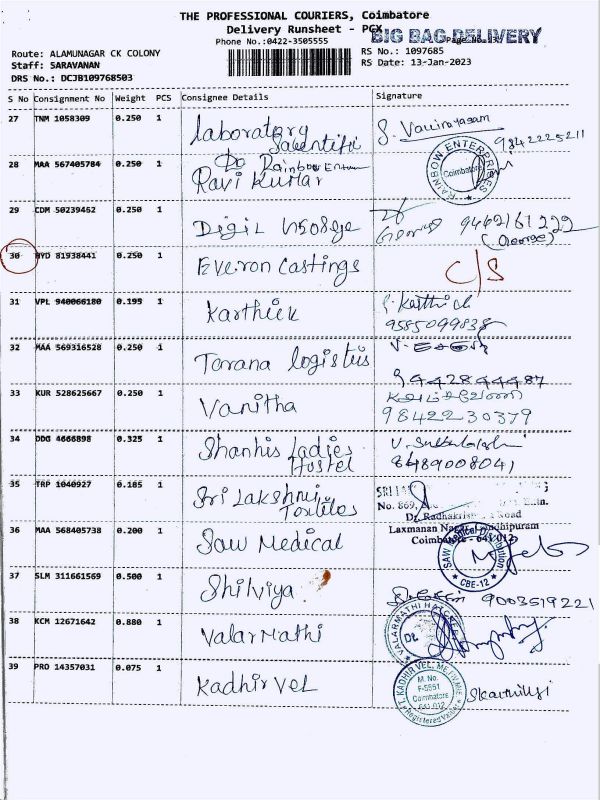 THE PROFESSIONAL COURIERS, Coimbatore
Delivery Runsheet - PCX
BIG BAG DELIVERY
Phone No.:0422-3505555
Route: ALAMUNAGAR CK COLONY
RS No.: 1097685
Staff: SARAVANAN
RS Date: 13-Jan-2023
DRS No.: DCJB109768503
S No Consignment No Weight PCS Consignee Details Signature
27 TNM 1058309 0.250 1 Laboratory
9842225211
28 MAA 567405784 0.250 1 Ravi Kumar
RAINBOW ENTERPRISES
Coimbatore
29 CDM 50239462 0.250 1
(George)
30 HYD 81938441 0.250 1 Everon Castings C/S
31 VPL 940066180 0.195 1 Karthick
9585099838
32 MAA 569316528 0.250 1 Torana logistics
9442844487
33 KUR 528625667 0.250 1 Vanitha
9842230379
34 DDG 4666898 0.325 1 Shanhis Ladies
Hostel 8489008041
35 TRP 1040927 0.185 1 Sri Lakshmi
No. 869,
Dr. Radhakrishna Road
Laxmanan Nagar, Gandhipuram
Coimbatore - 641 012
36 MAA 568405738 0.200 1 Saw Medical
CBE-12
37 SLM 311661569 0.500 1 Shilviya
9003519221
38 KCM 12671642 0.880 1 Valar Mathi
VALARMATHI
39 PRO 14357031 0.075 1 Kadhir Vel
KADHIR VEL
M. No.
F-5551
Coimbatore
641 012
Registered Valuer